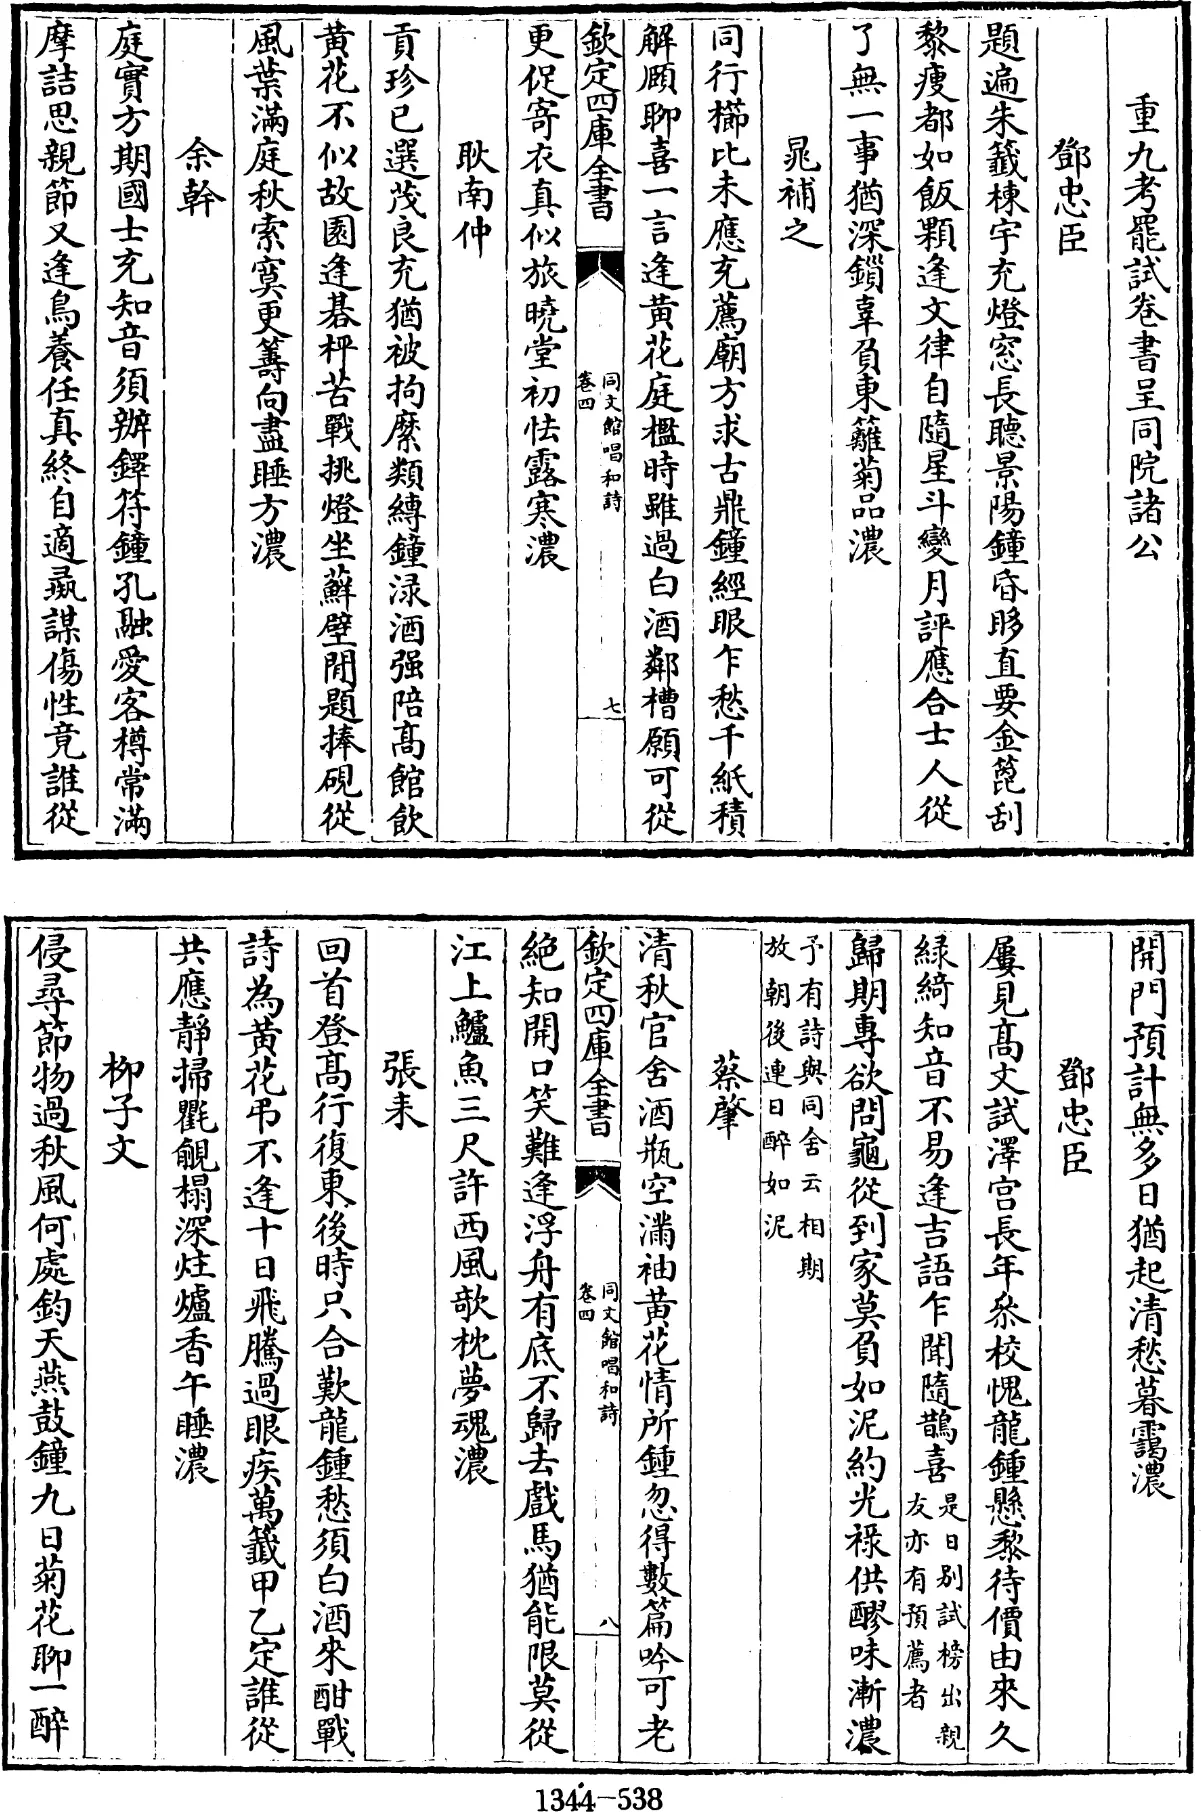 重九考罷試卷書呈同院諸公
鄧忠臣
題遍朱籖棟宇充燈窓長聽景陽鐘昏眵直要金篦刮
黎瘦都如飯顆逢文律自隨星斗變月評應合士人從
了無一事猶深鎻辜負東籬菊品濃
晁補之
同行櫛比未應充薦廟方求古鼎鐘經眼乍愁千紙積
解頤聊喜一言逢黃花庭檻時雖過白酒鄰槽願可從
欽定四庫全書
同文館唱和詩
卷四
七
更促寄衣真似旅曉堂初怯露寒濃
耿南仲
貢珍已選茂良充猶被拘縻類縛鐘渌酒强陪高館飲
黃花不似故園逢碁枰苦戰挑燈坐蘚壁閒題捧硯從
風葉滿庭秋索寞更籌向盡睡方濃
余幹
庭實方期國士充知音須辦鐸符鐘孔融愛客樽常滿
摩詰思親節又逢鳥養任真終自適烝謀傷性竟誰從
開門預計無多日猶起清愁暮靄濃
鄧忠臣
屢見高文試澤宫長年叅校愧龍鍾懸黎待價由來久
緑綺知音不易逢吉語乍聞隨鵲喜
是日别試榜出親
友亦有預薦者
歸期專欲問龜從到家莫負如泥約光禄供醪味漸濃
予有詩與同舍云相期
放朝後連日醉如泥
蔡肇
清秋官舍酒瓶空滿袖黃花情所鍾忽得數篇吟可老
欽定四庫全書
同文館唱和詩
卷四
八
絶知開口笑難逢浮舟有底不歸去戲馬猶能限莫從
江上鱸魚三尺許西風欹枕夢魂濃
張耒
回首登高行復東後時只合歎龍鍾愁須白酒來酣戰
詩為黃花弔不逢十日飛騰過眼疾萬籖甲乙定誰從
共應靜掃氍毹榻深炷爐香午睡濃
柳子文
侵尋節物過秋風何處鈞天燕鼓鐘九日菊花聊一醉
1344-538